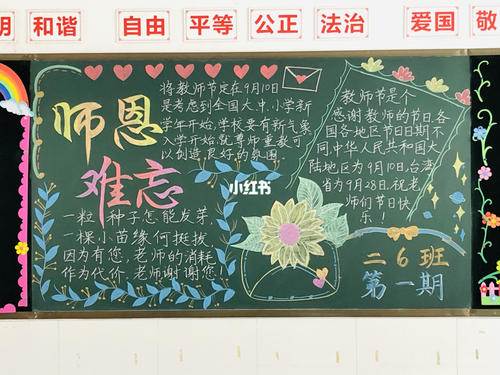 明 和谐 自由 平等 公正 法治 爱国 敬
师恩
难忘
将教师节定在9月10日
是考虑到全国大、中、小学新
学年开始,学校要有新气象
入学开始就尊师重教可
以创造良好的氛围
一粒种子怎能发芽,
一棵小苗缘何挺拔,
因为有您,老师的消耗
作为代价,老师谢谢您!
小红书
教师节是个
感谢教师的节日,各
国各地区节日日期不
同,中华人民共和国大
陆地区为9月10日,台湾
省为9月28日.祝老
师们节日快
乐!
二6班
第一期